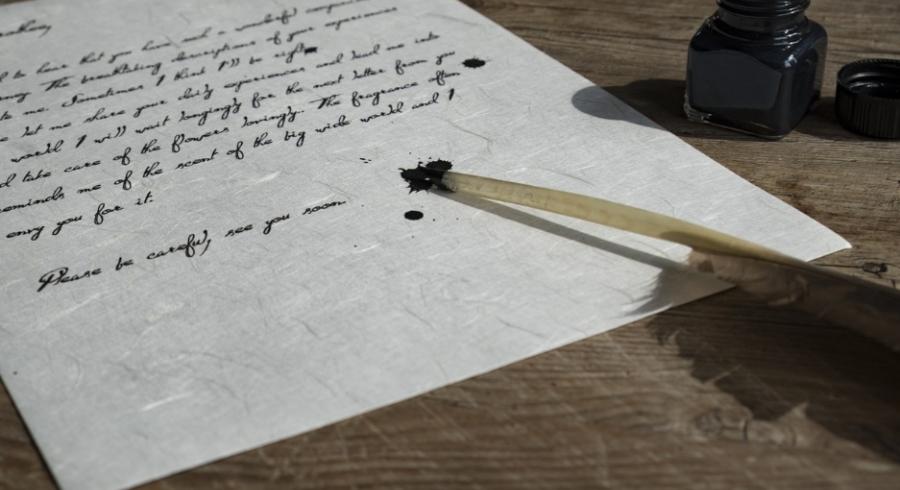 to hear that you have such a wonderful
The breathtaking descriptions of your experiences
to me. Sometimes I think I'll be right
let me share your daily experiences and lead me into
world I will wait longingly for the next letter from you
d take care of the flowers lovingly. The fragrance often
reminds me of the scent of the big wide world and I
envy you for it.
Please be careful, see you soon.